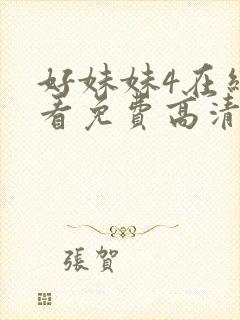 好妹妹4在线
看免费高清
張賀